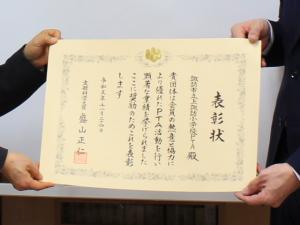 表彰状
諏訪市立上諏訪小学校PTA殿
貴団体は会員の熱意と協力に
より優れたPTA活動を行い
顕著な業績を挙げられました
ここに奨励のためこれを表彰
します
文部科学大臣 盛山正仁